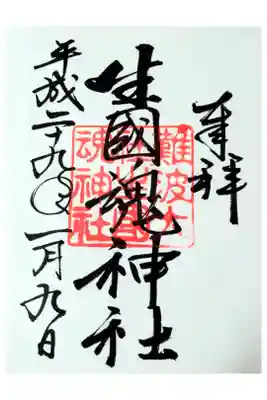 奉拝
生國魂神社
平成二十九年一月九日
難波大
魂神社